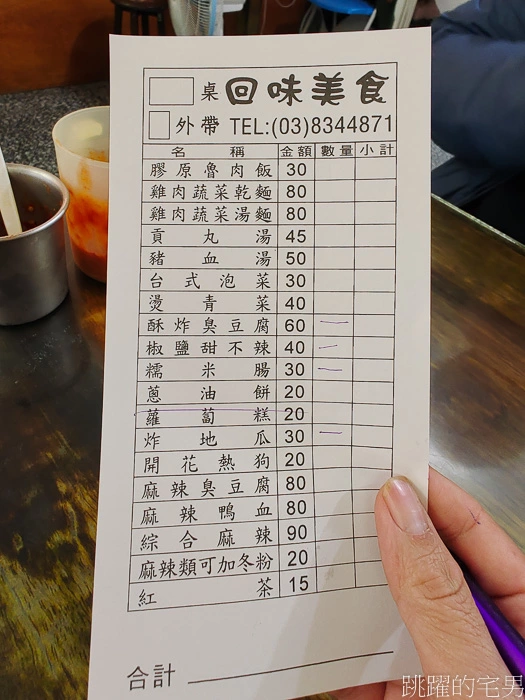 桌 回味美食
外帶 TEL:(03)8344871
名稱 金額 數量 小計
膠原魯肉飯 30
雞肉蔬菜乾麵 80
雞肉蔬菜湯麵 80
貢丸湯 45
豬血湯 50
台式泡菜 30
燙青菜 40
酥炸臭豆腐 60 一
椒鹽甜不辣 40 一
糯米腸 30 一
蔥油餅 20
蘿蔔糕 20
炸地瓜 30 一
開花熱狗 20
麻辣臭豆腐 80
麻辣鴨血 80
綜合麻辣 90
麻辣類可加冬粉 20
紅茶 15
合計
跳躍的宅男